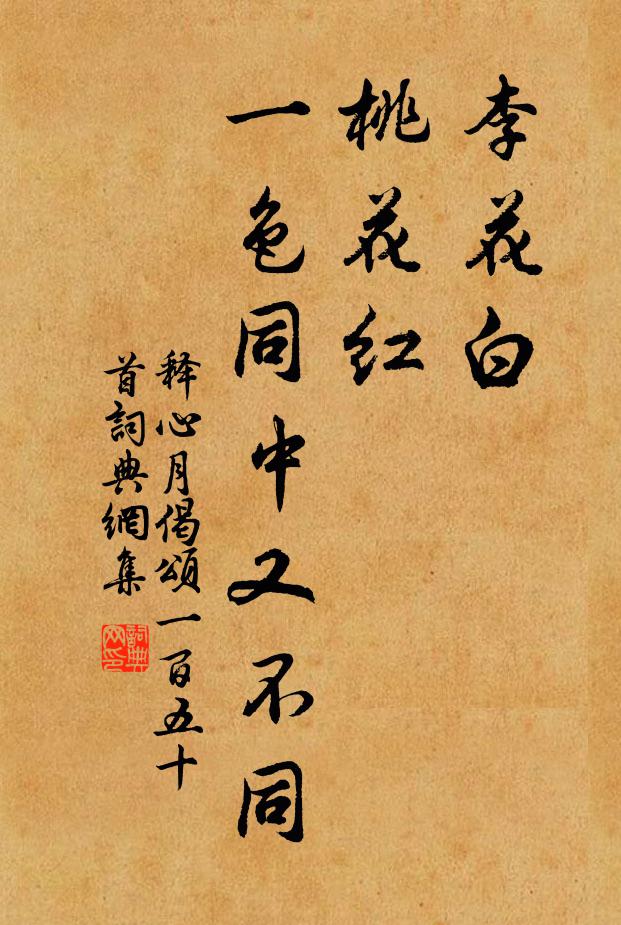 李花白
桃花红
一色同中又不同
释心月偈頌一百五十
首詞典網集
詞典
网印